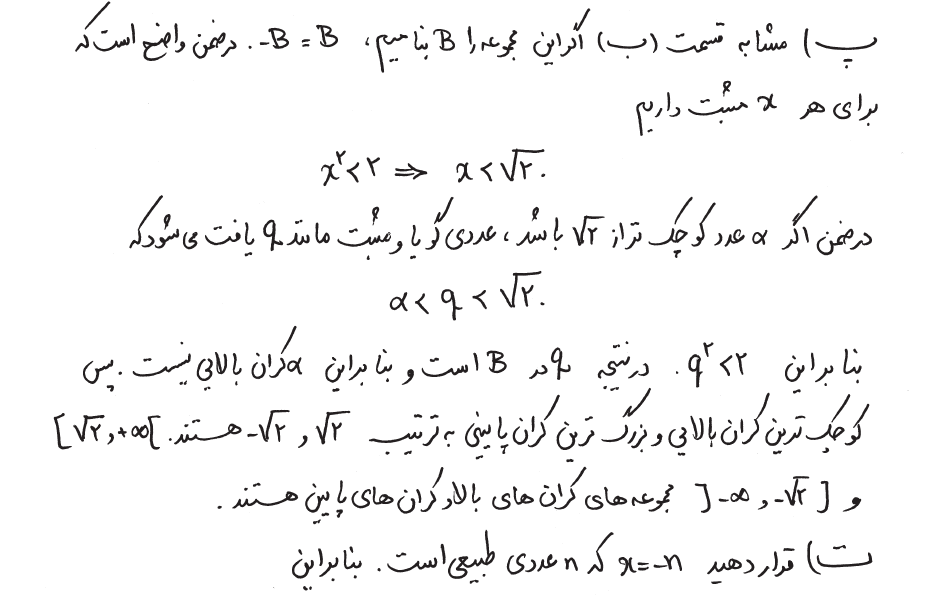 پ) مشابه قسمت (ب) اگر این مجموعه را B بنامیم، -B = B. در ضمن واضح است که
برای هر x مثبت داریم
x^۲ < ۲ ⇒ x < √۲.
در ضمن اگر α عدد کوچک تر از √۲ باشد، عددی گویا و مثبت مانند q یافت می شود که
α < q < √۲.
بنابراین q^۲ < ۲. در نتیجه q در B است و بنابراین α کران بالایی نیست. پس
کوچک ترین کران بالایی و بزرگ ترین کران پایینی به ترتیب √۲ و -√۲ هستند. [√۲, +∞[
و ]-∞, -√۲] مجموعه های کران های بالا و کران های پایین هستند.
ت) قرار دهید x = -n که n عددی طبیعی است. بنابراین